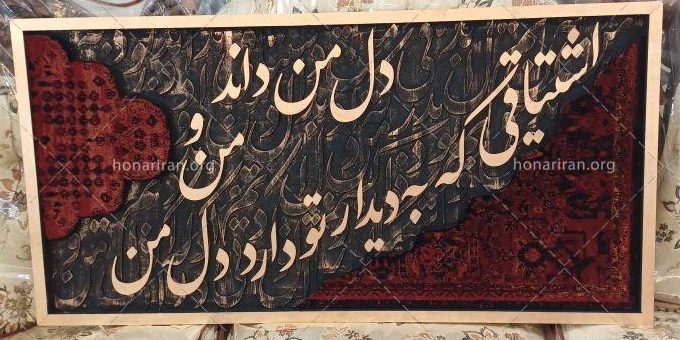 اشتیاقی که به دیدار تو دارد دل من
دل من داند و من
honariran.org
honariran.org